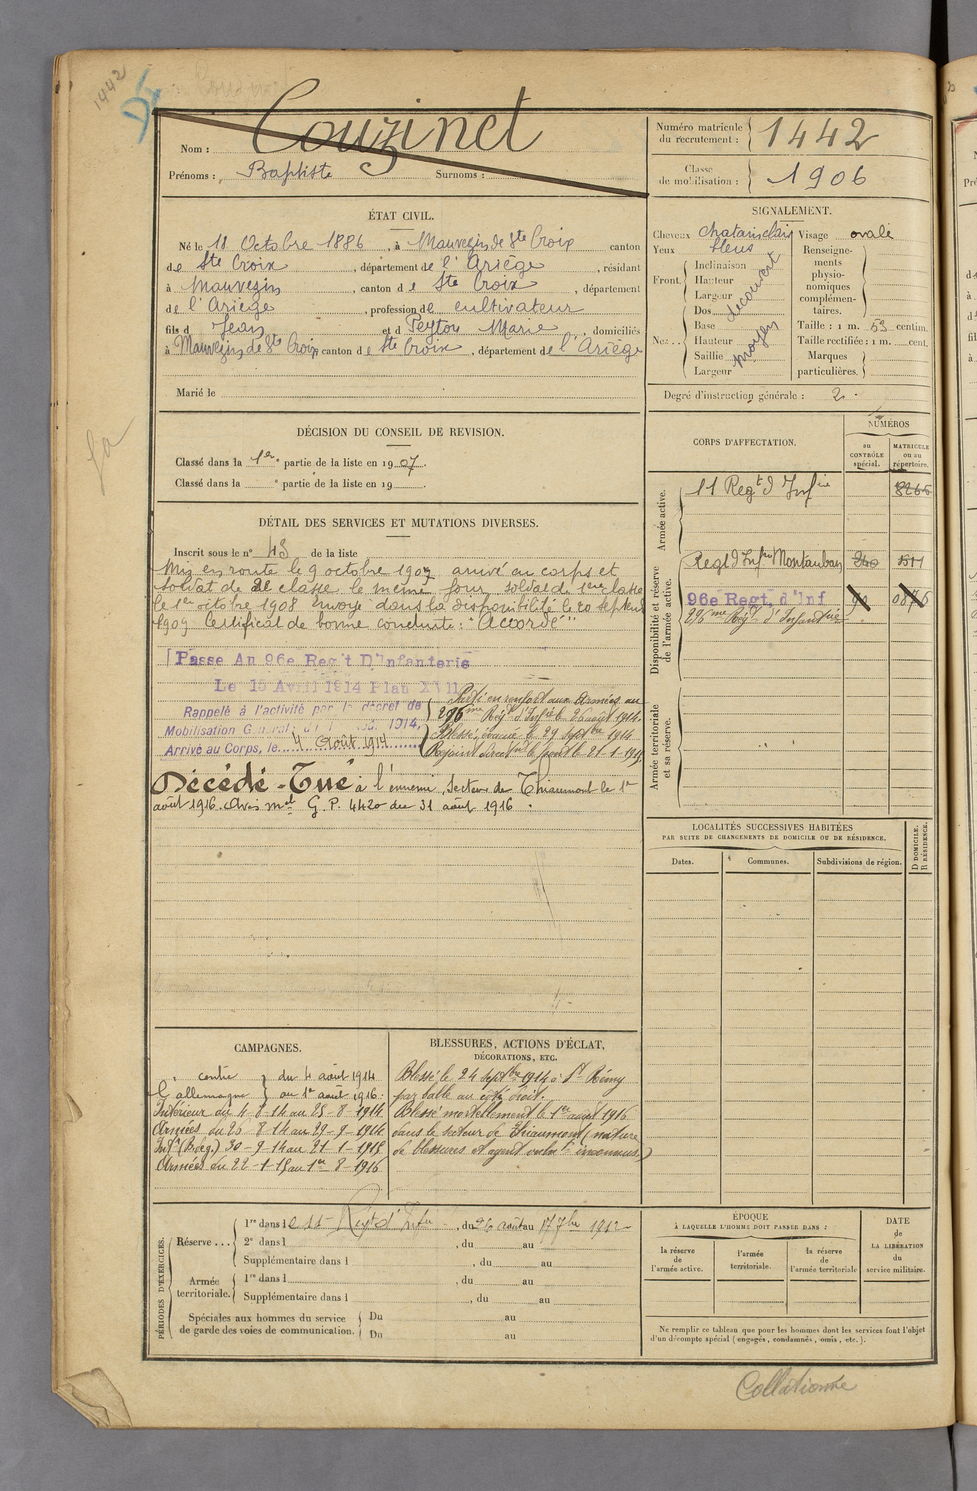 1442
Df
Nom : Couzinet
Prénoms : Baptiste Surnoms :
Numéro matricule du recrutement : 1442
Classe de mobilisation : 1906
ÉTAT CIVIL.
Né le 11 Octobre 1886, à Mauvezin de Ste Croix canton
de Ste Croix, département de l'Ariège, résidant
à Mauvezin, canton de Ste Croix, département
de l'Ariège, profession de cultivateur
fils d Jean et d Peytou Marie, domiciliés
à Mauvezin de Ste Croix canton de Ste Croix, département de l'Ariège
Marié le
SIGNALEMENT.
Cheveux chatains clair Visage ovale
Yeux bleus
Front. Inclinaison
Hauteur
Largeur
découvert
Nez... Dos
Base
Hauteur
Saillie
Largeur
moyen
Renseignements physionomiques complémentaires.
Taille : 1 m. 53 centim.
Taille rectifiée : 1 m. cent.
Marques particulières.
Degré d'instruction générale : 2
DÉCISION DU CONSEIL DE REVISION.
Classé dans la 1re partie de la liste en 1907.
Classé dans la e partie de la liste en 19
DÉTAIL DES SERVICES ET MUTATIONS DIVERSES.
Inscrit sous le n° 43 de la liste
Mis en route le 9 octobre 1907 arrivé au corps et
soldat de 2e classe le même jour soldat de 1ere classe
le 1er octobre 1908 envoyé dans la disponibilité le 20 septem
1909 Certificat de bonne conduite : "Accordé"
Passe Au 96e Reg't D'Infanterie
Le 15 Avril 1914 Plan XVII
Rappelé à l'activité par le décret de
Mobilisation Général 1914,
Arrivé au Corps, le 4 Août 1914
Parti en renfort aux Armées au
296me Régt d'Infie le 26 août 1914.
Blessé, évacué le 29 septbre 1914
Rejoint le front le 21-1-1915
Décédé - Tué à l'ennemi, Secteur de Thiaumont le 1er
août 1916. Avis mel G. P. 4420 du 31 août 1916.
CORPS D'AFFECTATION.
NUMÉROS
au CONTRÔLE spécial.
MATRICULE ou au répertoire.
Armée active.
11 Regt d'Infie 8265
Disponibilité et réserve de l'armée active.
Regt d'Infie Montauban 240 1511
96e Regt. d'Inf 90 0876
296me Régt d'Infanterie
Armée territoriale et sa réserve.
LOCALITÉS SUCCESSIVES HABITÉES
PAR SUITE DE CHANGEMENTS DE DOMICILE OU DE RÉSIDENCE.
Dates. Communes. Subdivisions de région. D DOMICILE. R RÉSIDENCE.
CAMPAGNES.
contre du 4 août 1914
l'allemagne au 1er août 1916.
Intérieur du 4-8-14 au 25-8-1914
Armées du 26-8-14 au 29-9-1914
Intr (Bless.) 30-9-14 au 21-1-1915
Armées du 22-1-15 au 1er-8-1916
BLESSURES, ACTIONS D'ÉCLAT,
DÉCORATIONS, ETC.
Blessé le 24 septbre 1914 à St Rémy
par balle au côté droit.
Blessé mortellement le 1er août 1916
dans le secteur de Thiaumont (nature
de blessures et agent vulnt inconnus)
PÉRIODES D'EXERCICES.
Réserve... 1re dans le 11 Regt d'Infie, du 26 août au 17 7bre 1912
2e dans l, du au
Supplémentaire dans l, du au
Armée territoriale. 1re dans l, du au
Supplémentaire dans l, du au
Spéciales aux hommes du service de garde des voies de communication. Du au
Du au
ÉPOQUE
À LAQUELLE L'HOMME DOIT PASSER DANS :
la réserve de l'armée active.
l'armée territoriale.
la réserve de l'armée territoriale
DATE de LA LIBÉRATION du service militaire.
Ne remplir ce tableau que pour les hommes dont les services font l'objet
d'un décompte spécial (engagés, condamnés, omis, etc.).
Collationné